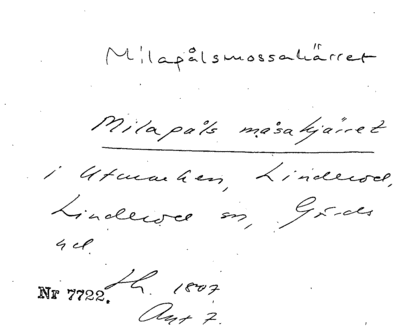 Milapålsmossakärret
Milapåls måsakjärret
i Utmarken, Linderöd,
Linderöd sn, Gärds
hd.
Nr 7722. Sk. 1807
Akt 7.